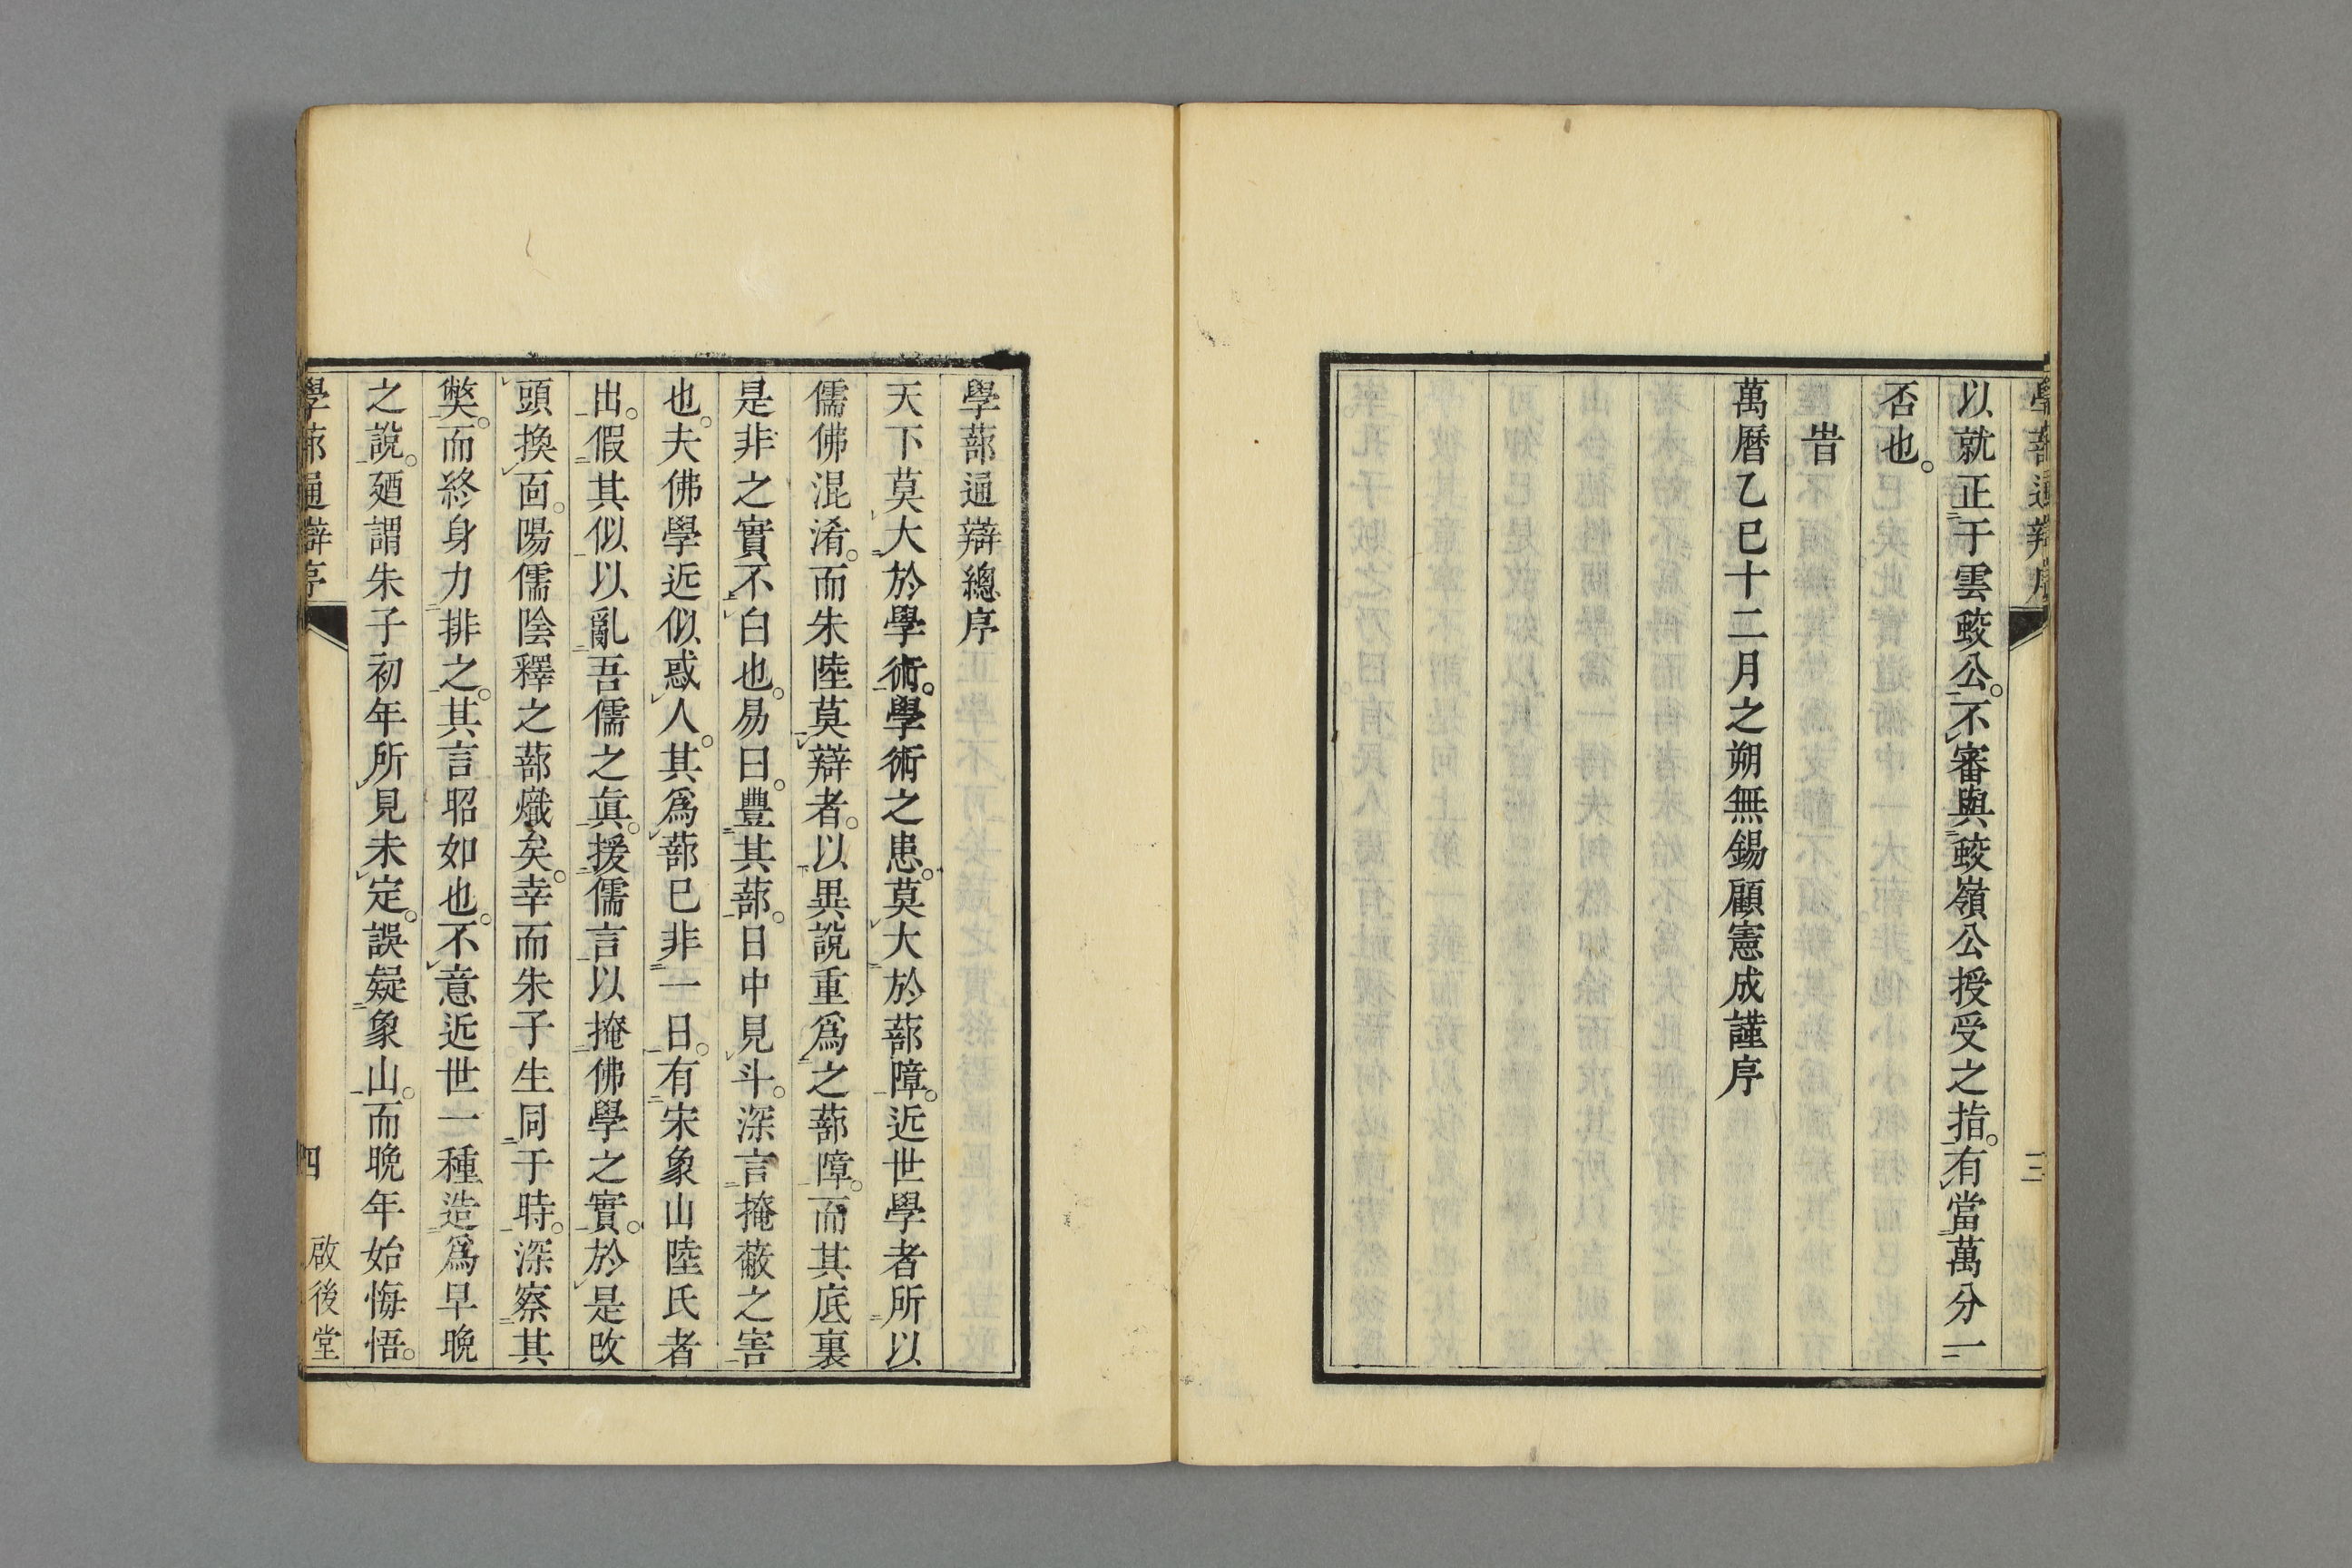 學蔀通辯序
三
以就正于雲蛟公。不審與蛟嶺公授受之指。有當萬分一
否也。
旹
萬曆乙巳十二月之朔無錫顧憲成謹序
學蔀通辯總序
天下莫大於學術。學術之患。莫大於蔀障。近世學者所以
儒佛混淆。而朱陸莫辯者。以異說重爲之蔀障。而其底裏
是非之實不白也。易曰。豐其蔀。日中見斗。深言掩蔽之害
也。夫佛學近似惑人。其爲蔀已非一日。有宋象山陸氏者
出。假其似以亂吾儒之眞。援儒言以掩佛學之實。於是改
頭換面。陽儒陰釋之蔀熾矣。幸而朱子生同于時。深察其
獘。而終身力排之。其言昭如也。不意近世一種造爲早晚
之說。廼謂朱子初年所見未定。誤疑象山。而晚年始悔悟。
學蔀通辯序
四
啟後堂